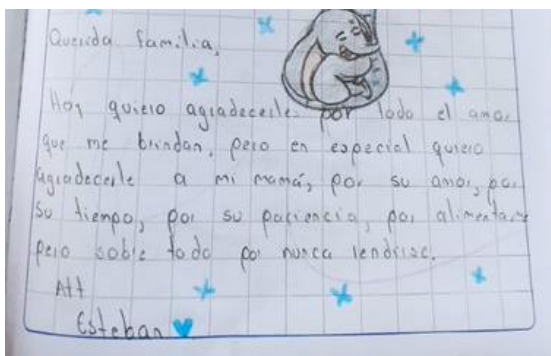 Querida familia,
Hoy quiero agradecerle por todo el amor
que me brindan, pero en especial quiero
agradecerle a mi mamá, por su amor, por
su tiempo, por su paciencia, por alimentarme
pero sobre todo por nunca rendirse.
Att
Esteban